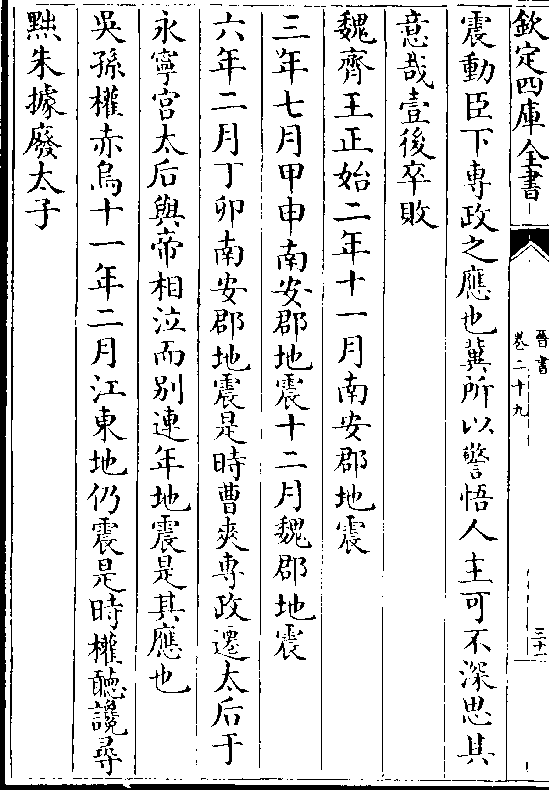 欽定四庫全書
晉書
卷二十九
三十一
震動臣下專政之應也冀所以警悟人主可不深思其
意哉壹後卒敗
魏齊王正始二年十一月南安郡地震
三年七月甲申南安郡地震十二月魏郡地震
六年二月丁卯南安郡地震是時曹爽專政遷太后于
永寧宮太后與帝相泣而別連年地震是其應也
吳孫權赤烏十一年二月江東地仍震是時權聽讒尋
黜朱據廢太子